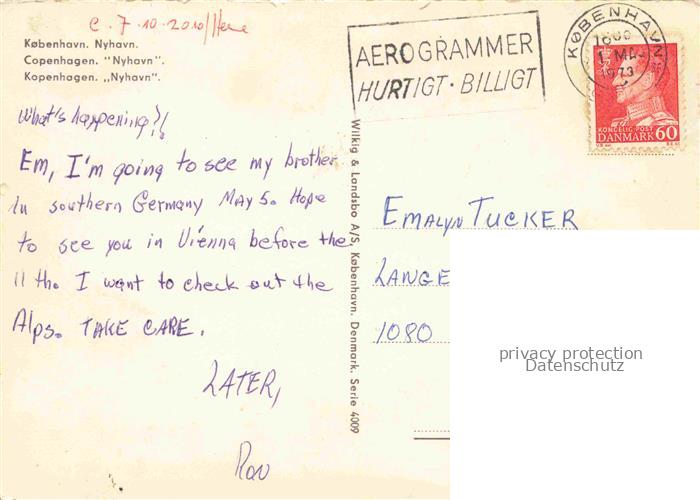 København. Nyhavn.
Copenhagen. "Nyhavn".
Kopenhagen. „Nyhavn".
What's happening?!
Em, I'm going to see my brother
in southern Germany May 5. Hope
to see you in Vienna before the
11 th. I want to check out the
Alps. TAKE CARE.
LATER,
Ron
Wilkig & Londsbo A/S, København. Denmark. Serie 4009
AEROGRAMMER
HURTIGT · BILLIGT
KØBENHAVN
1973
KONGELIG POST
DANMARK 60
EMALYN TUCKER
LANGE
1080
privacy protection
Datenschutz